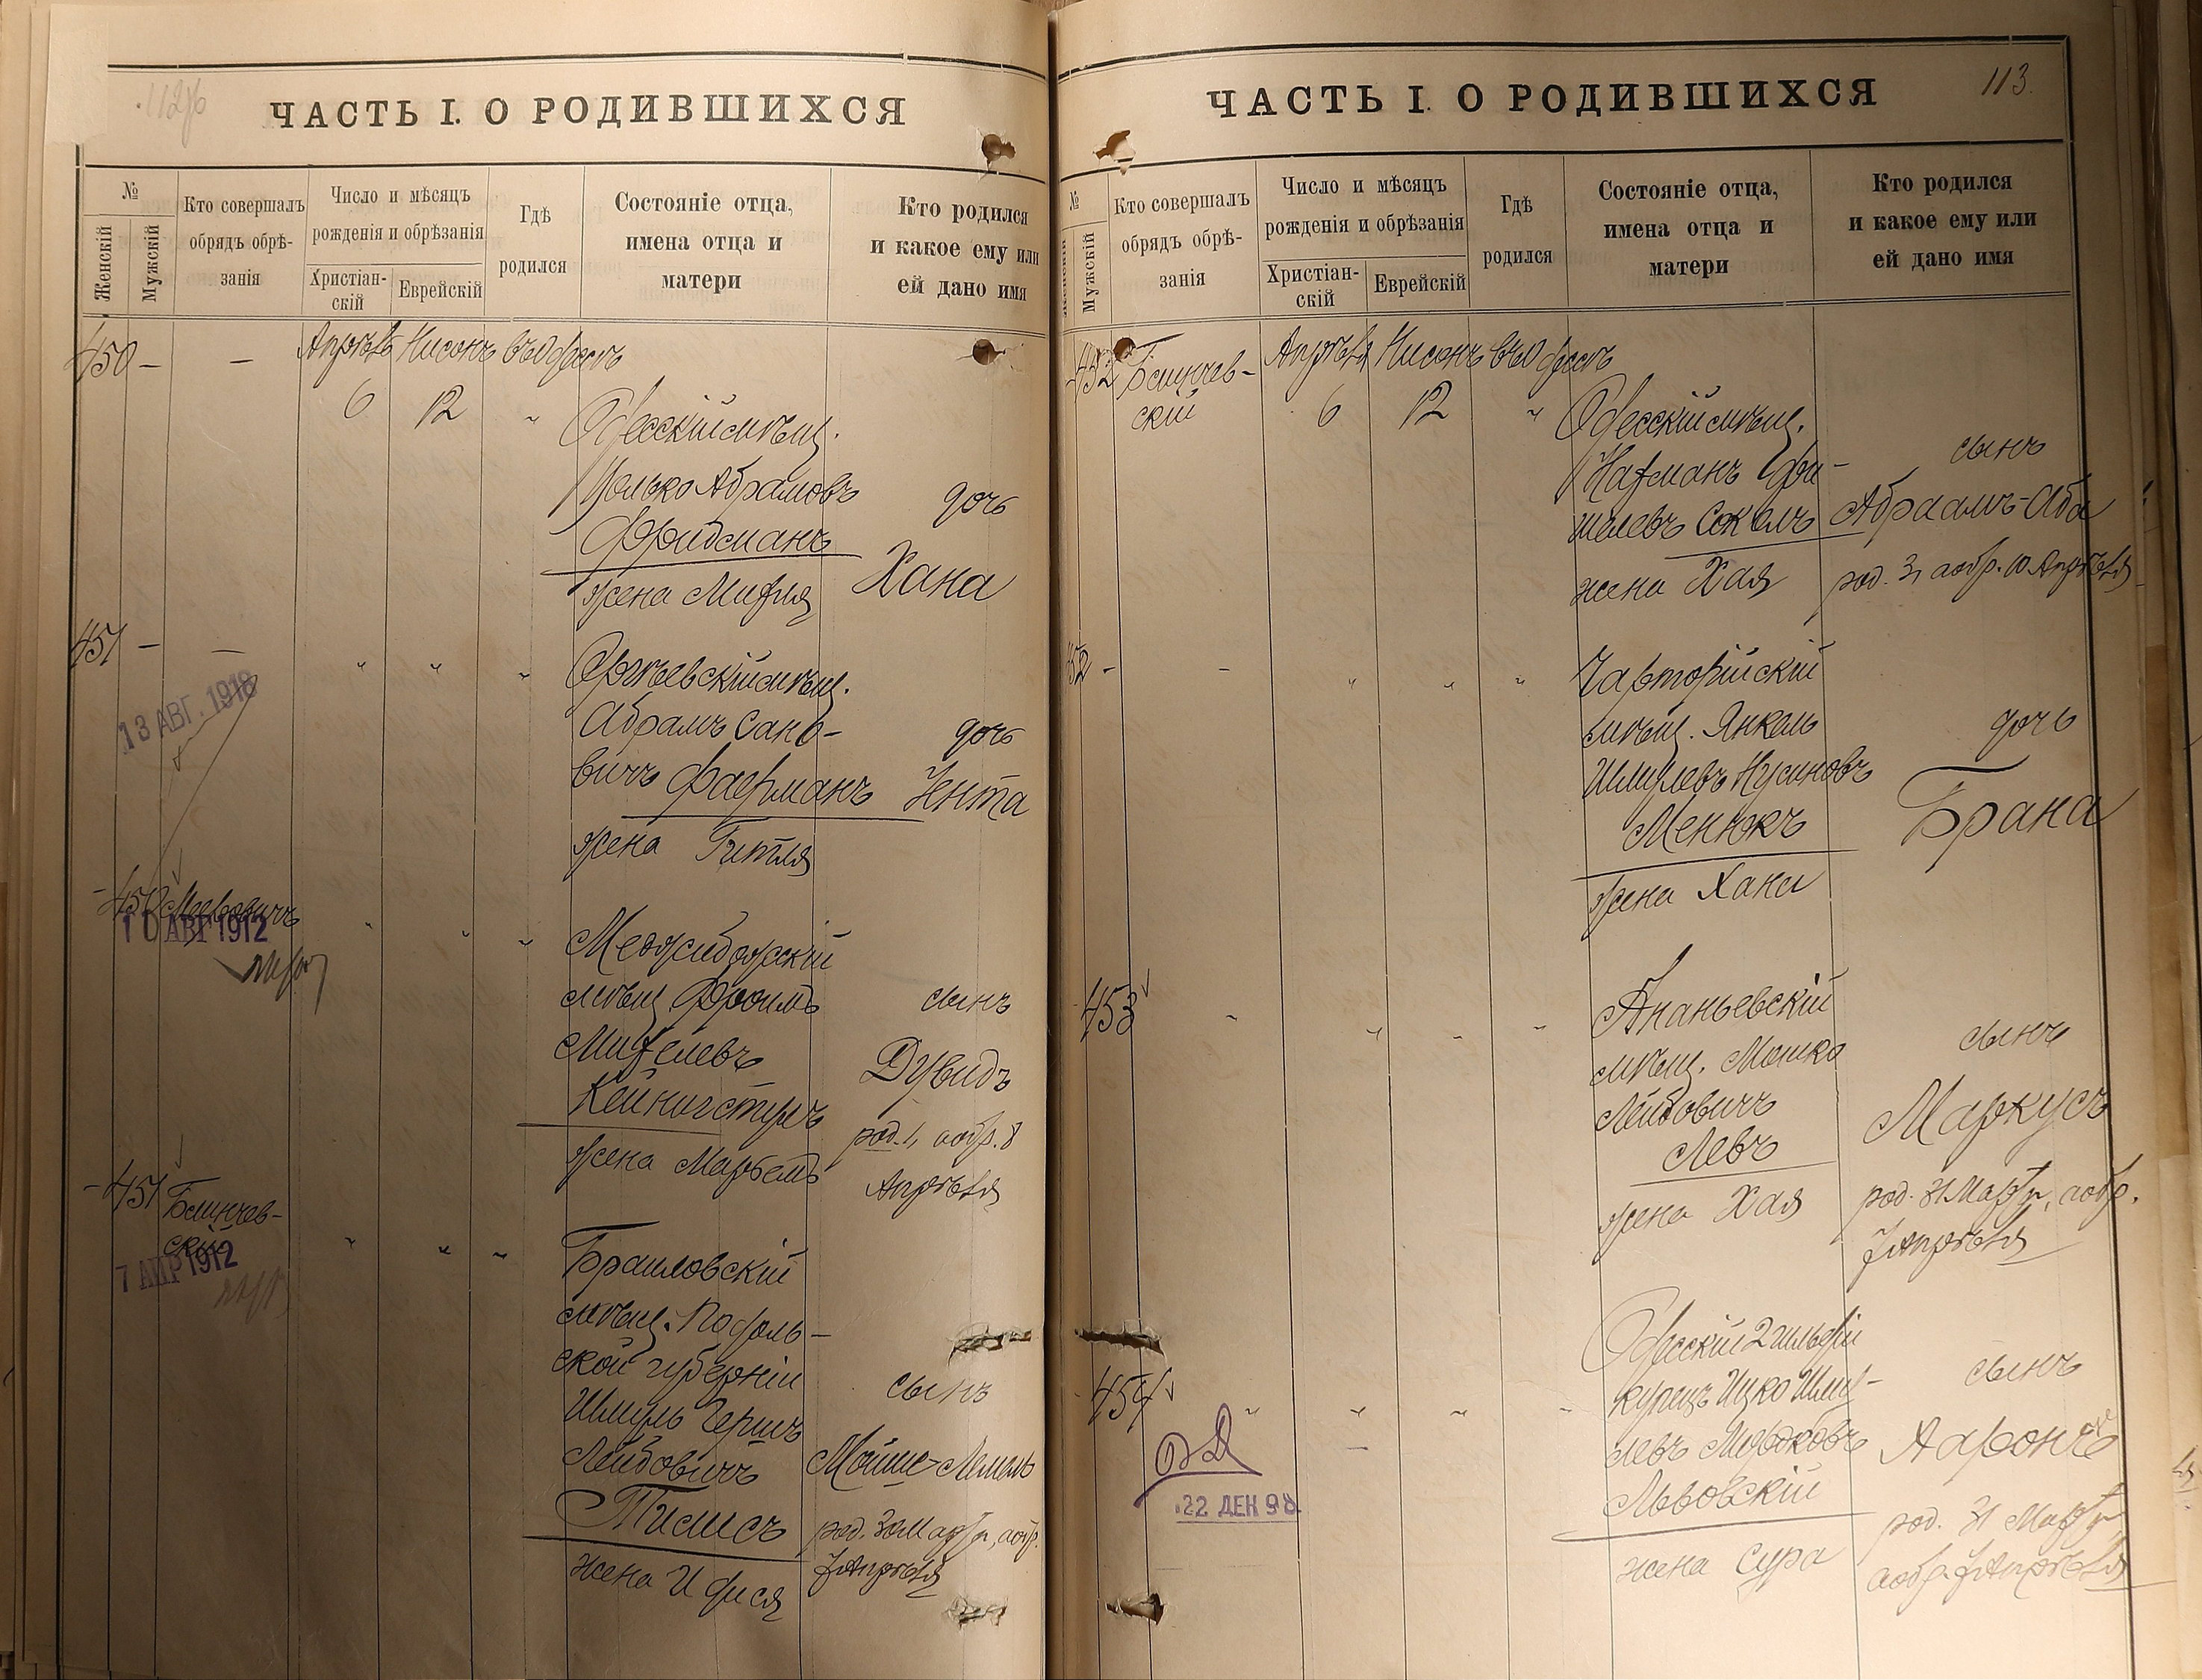 112об
ЧАСТЬ I. О РОДИВШИХСЯ
№
Женскій
Мужскій
Кто совершалъ
обрядъ обрѣ-
занія
Число и мѣсяцъ
рожденія и обрѣзанія
Христіан-
скій
Еврейскій
Гдѣ
родился
Состояніе отца,
имена отца и
матери
Кто родился
и какое ему или
ей дано имя
450 – – Апрѣль Нисонъ въ Одессѣ
6 12 " Одесскій мѣщ.
Абрамовъ дочь
Фридманъ
жена Михля Хана
451 – – " " " мѣщ.
13 АВГ. 1918
Абрамъ Сано-
вичъ Фаерманъ дочь
Ента
жена Гитля
450 Мееровичъ " " " Меджибожскій
10 АВГ 1912
мѣщ. Фроимъ сынъ
Михелевъ Дувидъ
жена род. 1, а обр. 8
Апрѣля
451 Блинчев-
скій " " " Браиловскій
7 АПР 1912
мѣщ. Подоль-
ской губерніи сынъ
Шмуль Гершъ
Лейбовичъ Мойше-Лемель
род. 30 Марта, а обр.
жена 7 Апрѣля
113.
ЧАСТЬ I. О РОДИВШИХСЯ
№
Женскій
Мужскій
Кто совершалъ
обрядъ обрѣ-
занія
Число и мѣсяцъ
рожденія и обрѣзанія
Христіан-
скій
Еврейскій
Гдѣ
родился
Состояніе отца,
имена отца и
матери
Кто родился
и какое ему или
ей дано имя
452 Блинчев- Апрѣля Нисонъ въ Одессѣ
скій 6 12 " Одесскій мѣщ.
Нахманъ Фи- сынъ
шелевъ Соколъ Абраамъ-Аба
жена Хая род. 3, а обр. 10 Апрѣля
452 – – " " " Чарторійскій
мѣщ. Янкель дочь
Шмулевъ Нусиновъ
Менюкъ Брана
жена Хана
453 " " " " Ананьевскій
мѣщ. Мошко сынъ
Лейбовичъ Маркусъ
Левъ
жена Хая род. 31 Марта, а обр.
7 Апрѣля
454 " " " " Одесскій 2 гильдіи
купецъ Ицко Шму- сынъ
левъ Мордковъ Ааронъ
Львовскій
22 ДЕК 98
жена Сура род. 31 Марта
а обр. 7 Апрѣля